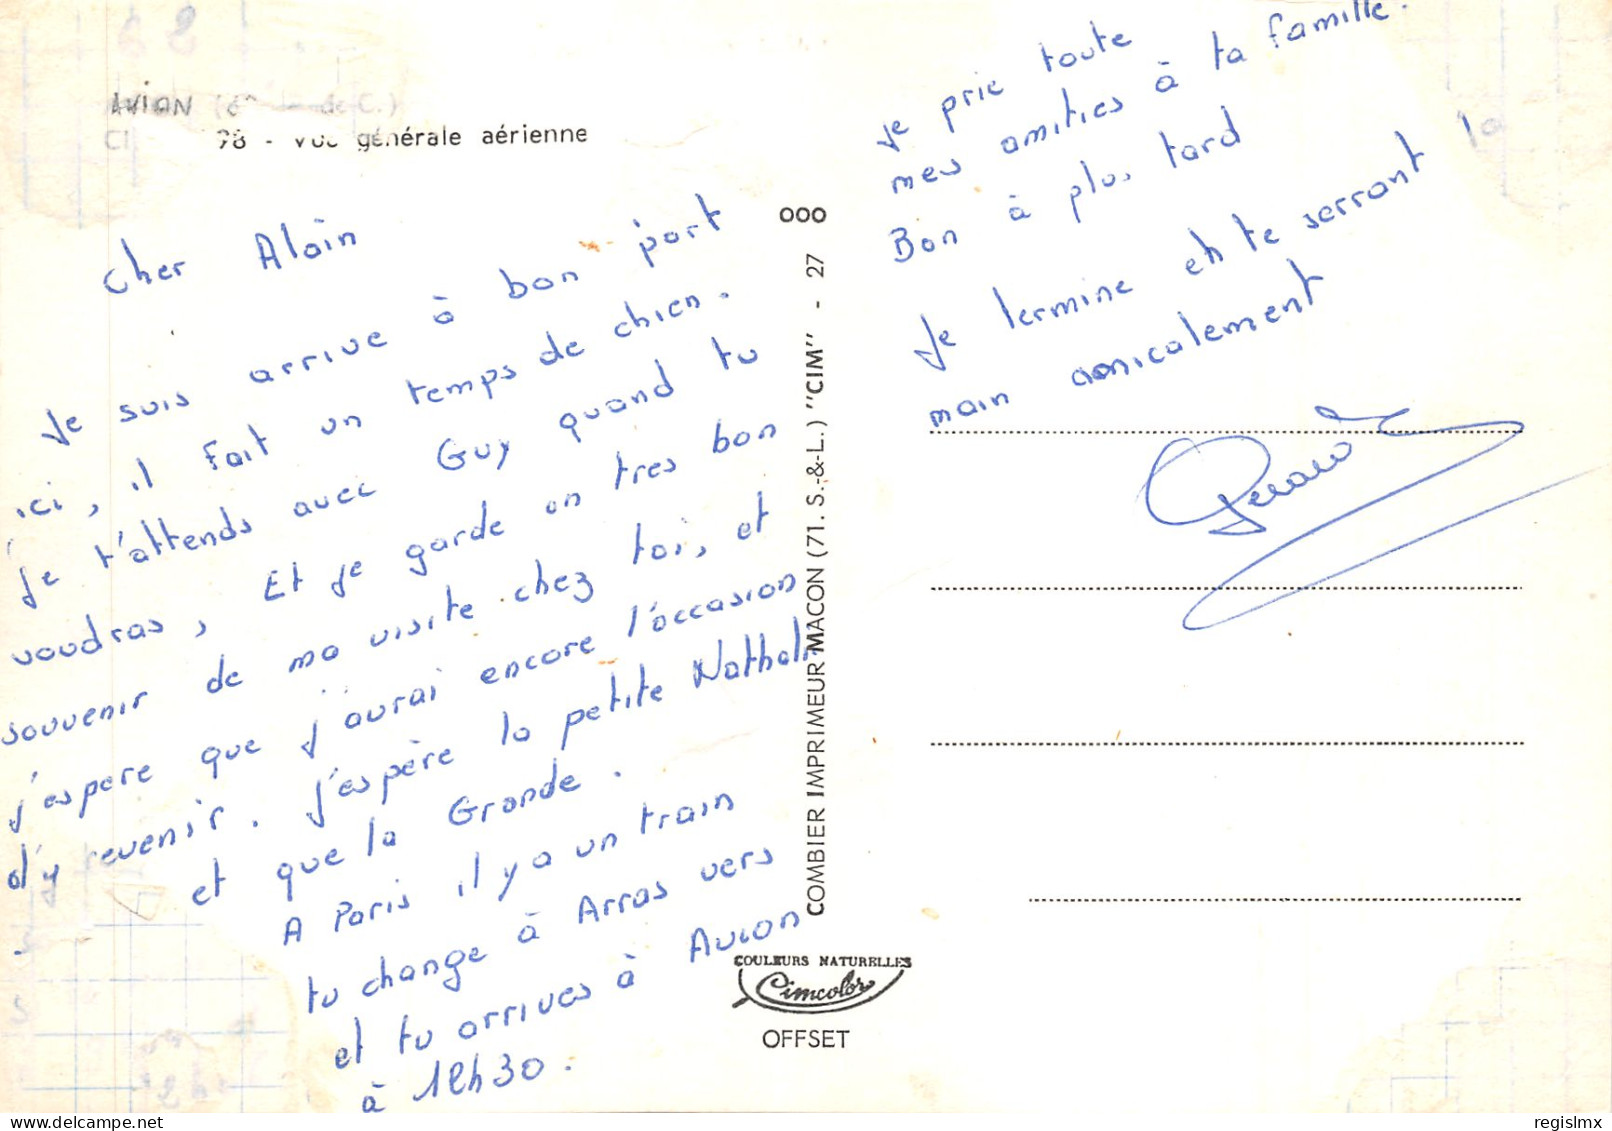 AVION
78 - Vue générale aérienne
Cher Alain
Je suis arrive à bon port
ici, il Fait un temps de chien.
je t'attends avec Guy quand tu
voudras, Et je garde un tres bon
souvenir de ma visite chez toi, et
j'espere que j'aurai encore l'occasion
d'y revenir. J'espère la petite Nathali
et que la Grande.
A Paris il y a un train
tu change à Arras vers
et tu arrives à Avion
à 12h30.
Je prie toute
mes amities à ta famille.
Bon à plus tard
Je termine en te serrant la
main amicalement
Gerard
000
COMBIER IMPRIMEUR MACON (71. S.-&-L.) "CIM" - 27
COULEURS NATURELLES
Cimcolor
OFFSET
regislmx